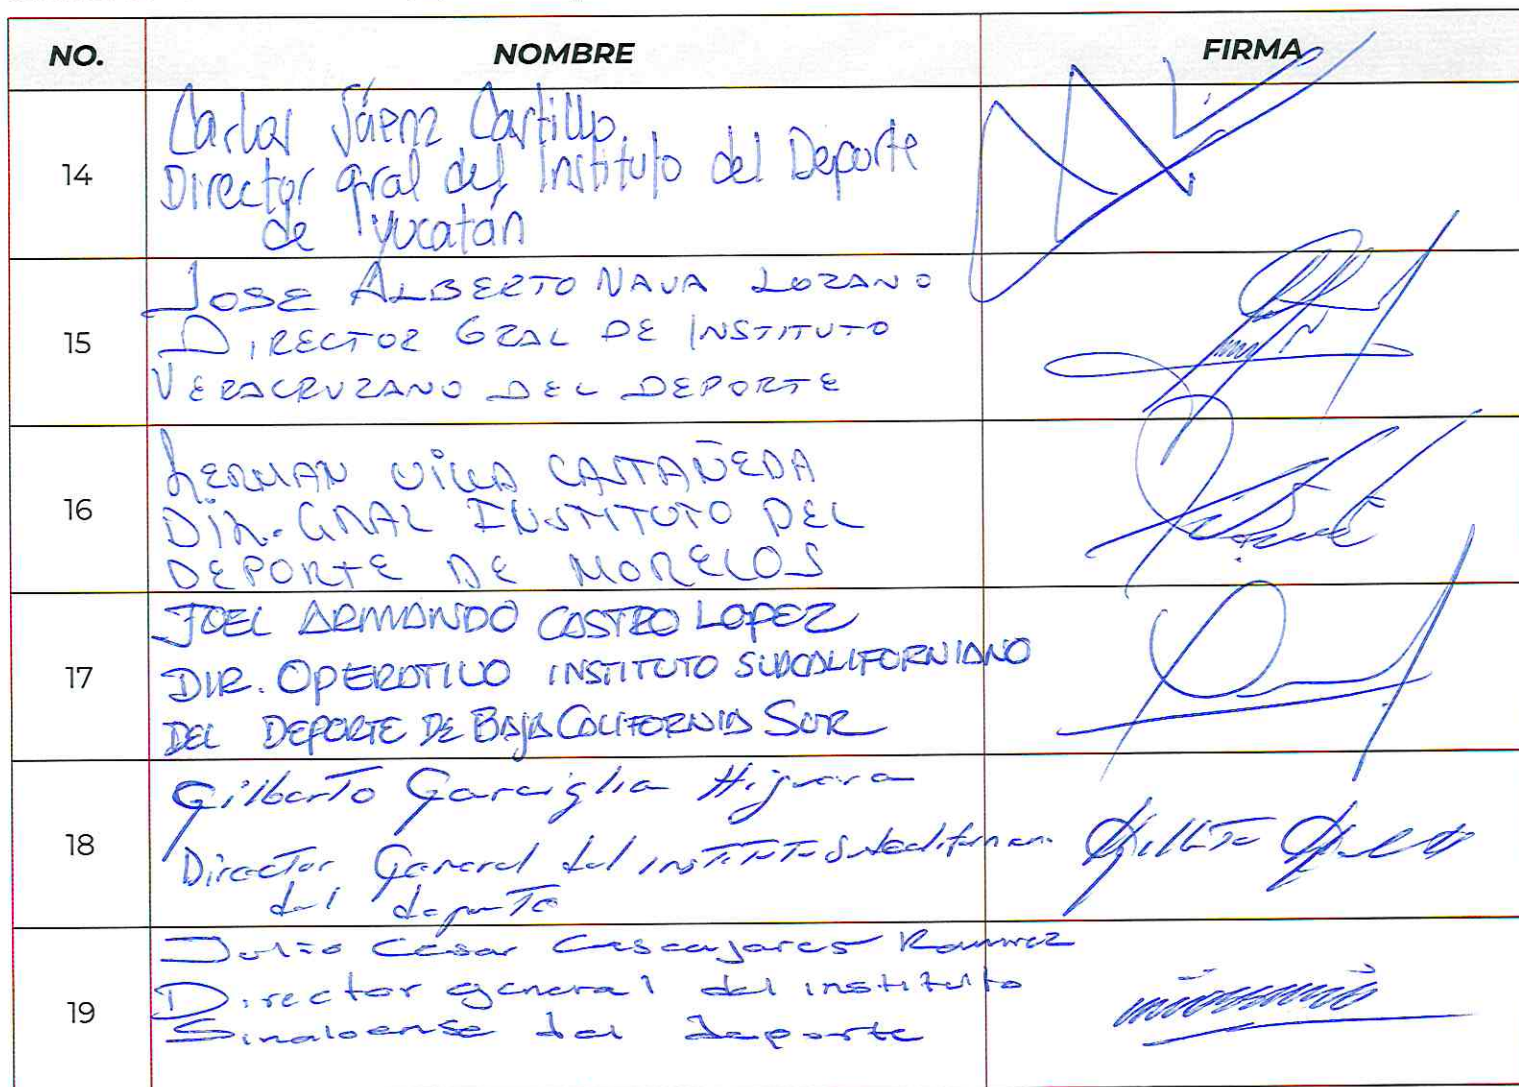 NO. NOMBRE FIRMA
14
Carlos Sáenz Castillo.
Director gral del Instituto del Deporte
de Yucatán
15
JOSE ALBERTO NAVA LOZANO
DIRECTOR GRAL DE INSTITUTO
VERACRUZANO DEL DEPORTE
16
GERMAN VILLA CASTAÑEDA
DIR. GRAL INSTITUTO DEL
DEPORTE DE MORELOS
17
JOEL ARMANDO CASTRO LOPEZ
DIR. OPERATIVO INSTITUTO SUDCALIFORNIANO
DEL DEPORTE DE BAJA CALIFORNIA SUR
18
Gilberto Garciglia Higuera
Director General del instituto
del deporte
19
Julio Cesar Cascajares Ramirez
Director general del instituto
Sinaloense del Deporte